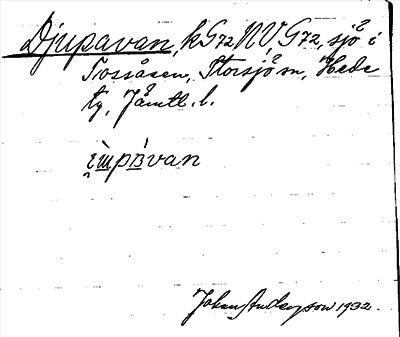 Djupavan, kG72NV, G72, sjö i
Tossåsen, Storsjö sn, Hede
tg, Jämtl. l.
Johan Anderson 1932.